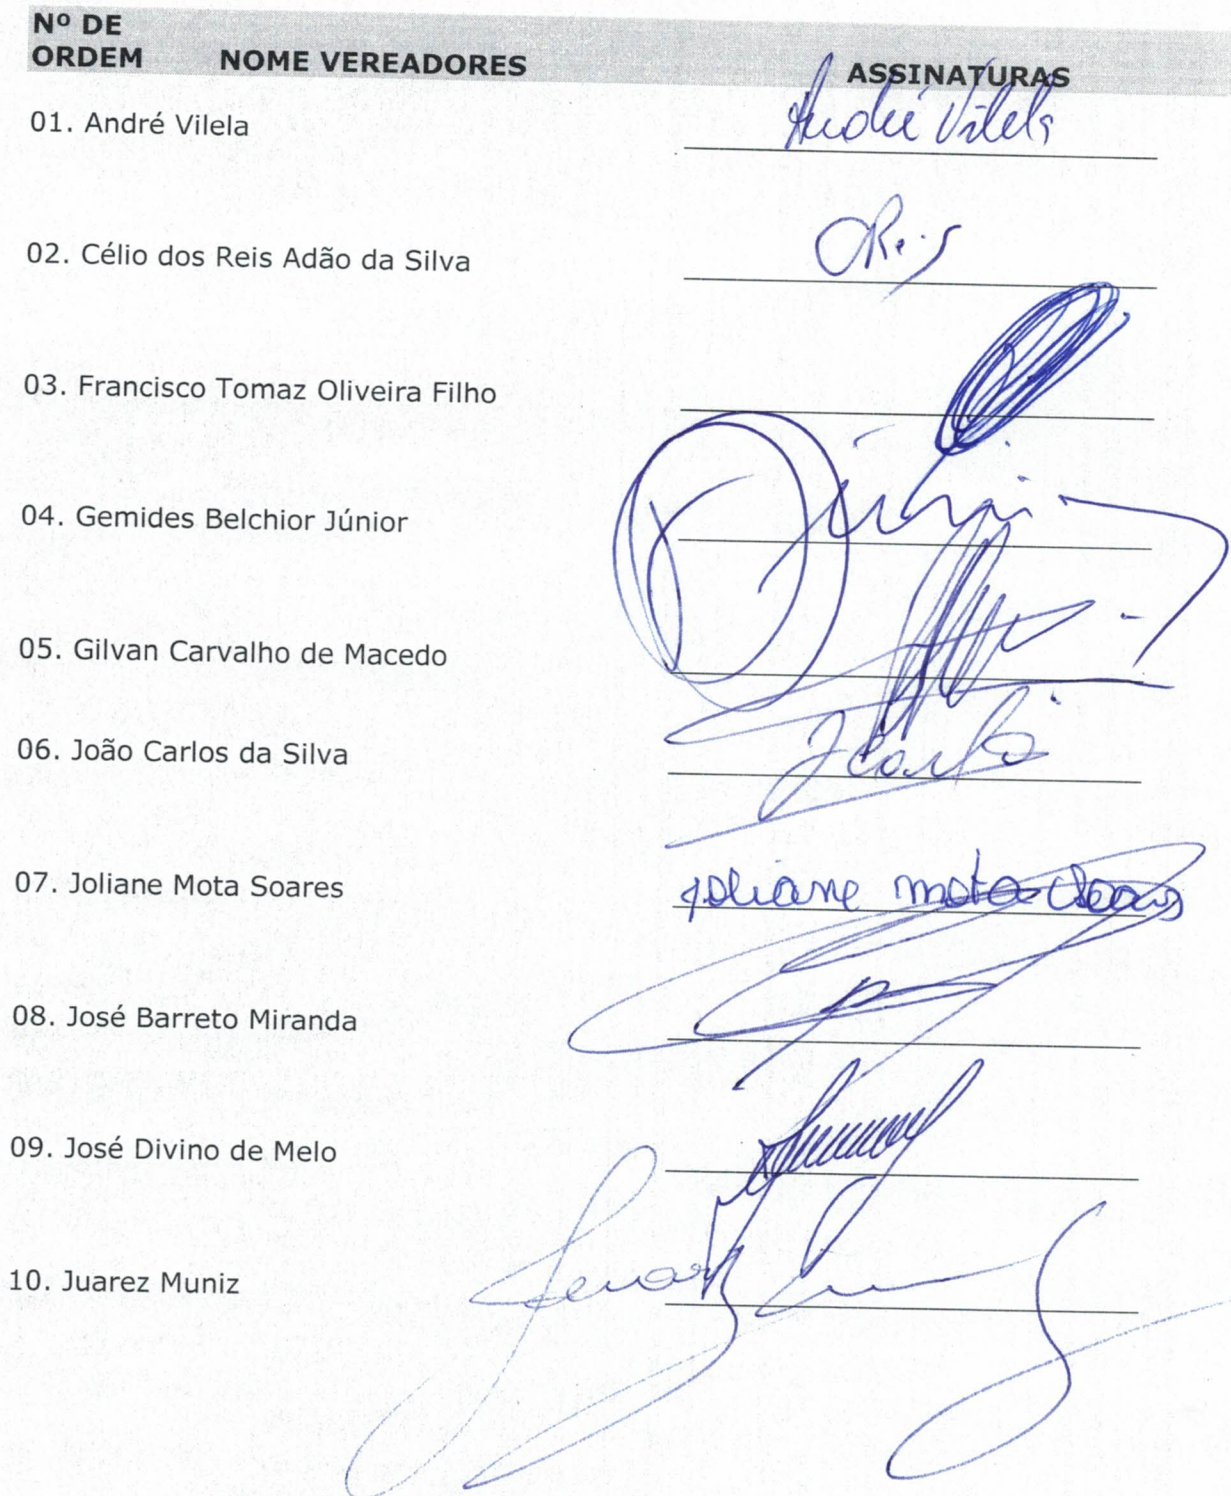 Nº DE
ORDEM NOME VEREADORES ASSINATURAS
01. André Vilela André Vilela
02. Célio dos Reis Adão da Silva CReis
03. Francisco Tomaz Oliveira Filho
04. Gemides Belchior Júnior Júnior
05. Gilvan Carvalho de Macedo
06. João Carlos da Silva
07. Joliane Mota Soares Joliane Mota Soares
08. José Barreto Miranda
09. José Divino de Melo
10. Juarez Muniz